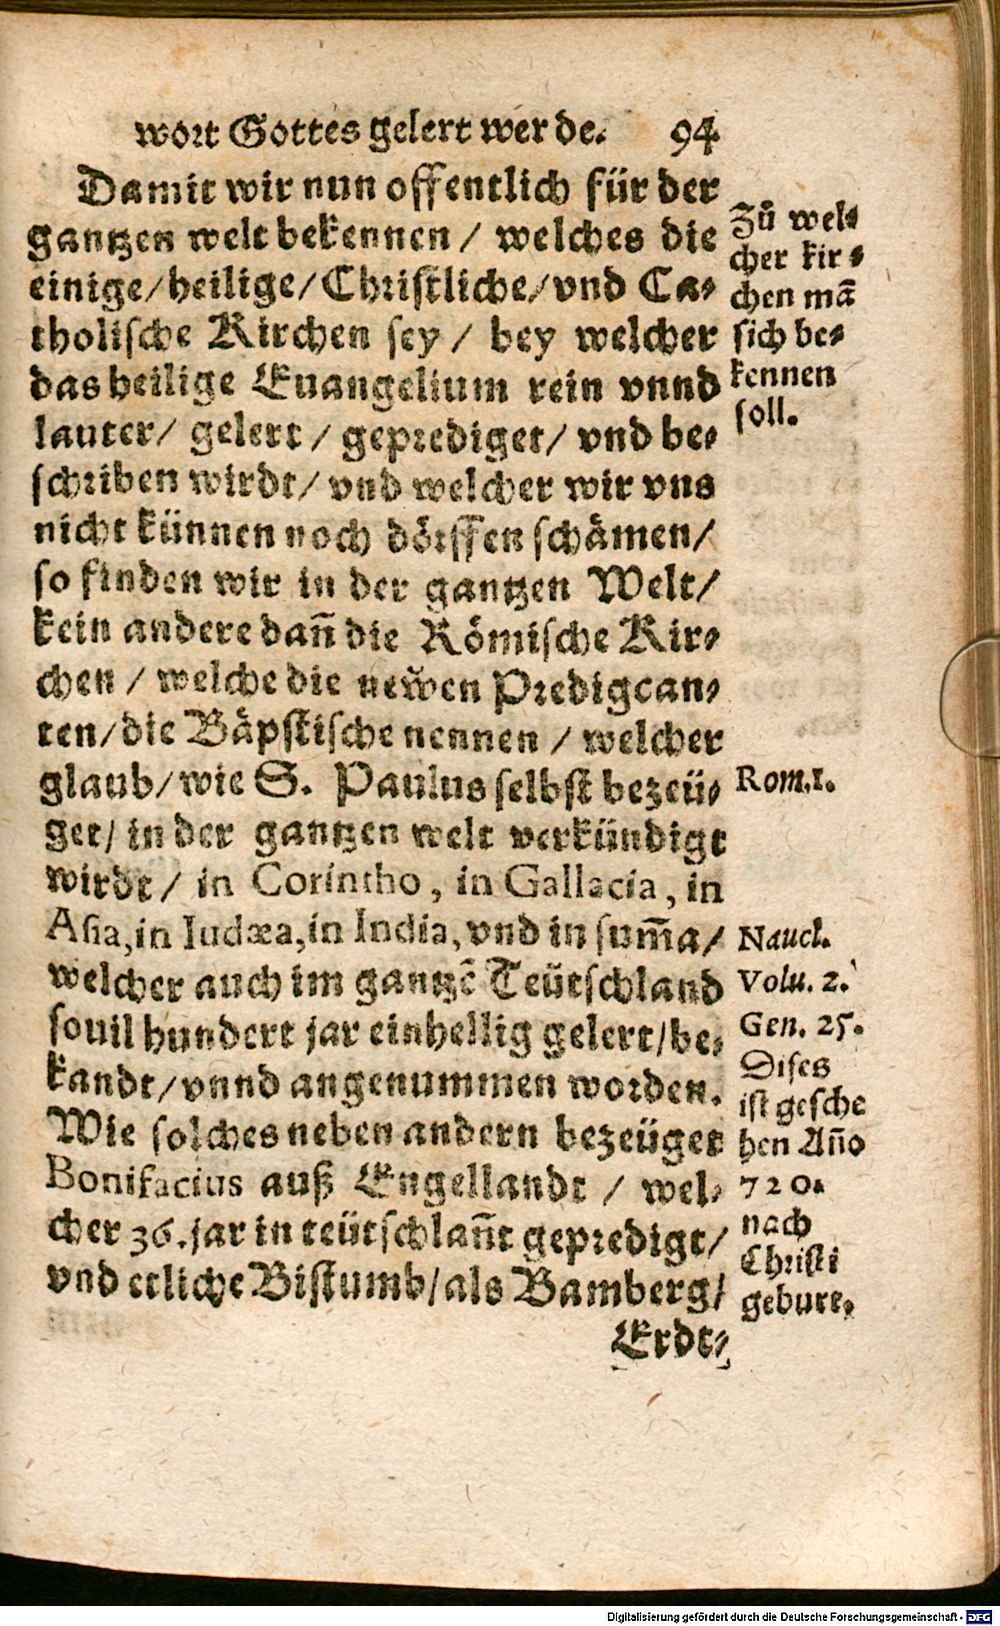 wort Gottes gelert werde. 94
Damit wir nun offentlich für der
gantzen welt bekennen / welches die
einige/heilige/Christliche/vnd Ca⸗
tholische Kirchen sey / bey welcher
das heilige Euangelium rein vnnd
lauter/ gelert / geprediget/ vnd be⸗
schriben wirdt/ vnd welcher wir vns
nicht künnen noch dörffen schämen/
so finden wir in der gantzen Welt/
kein andere dañ die Römische Kir⸗
chen / welche die neẘen Predigcan⸗
ten/die Bäpstische nennen / welcher
glaub/wie S. Paulus selbst bezeü⸗
get/ in der gantzen welt verkündigt
wirdt / in Corintho, in Gallacia, in
Asia,in Iudæa,in India,vnd in sum̃a/
welcher auch im gantzẽ Teütschland
souil hundert jar einhellig gelert/be⸗
kandt/vnnd angenummen worden.
Wie solches neben andern bezeüget
Bonifacius auß Engellandt / wel⸗
cher 36.jar in teütschlañt gepredigt/
vnd etliche Bistumb/als Bamberg/
Erdt⸗
Zů wel⸗
cher kir⸗
chen mã
sich be⸗
kennen
soll.
Rom.1.
Naucl.
Volu. 2.
Gen. 25.
Dises
ist gesche
hen Año
720.
nach
Christi
geburt.
Digitalisierung gefördert durch die Deutsche Forschungsgemeinschaft - DFG